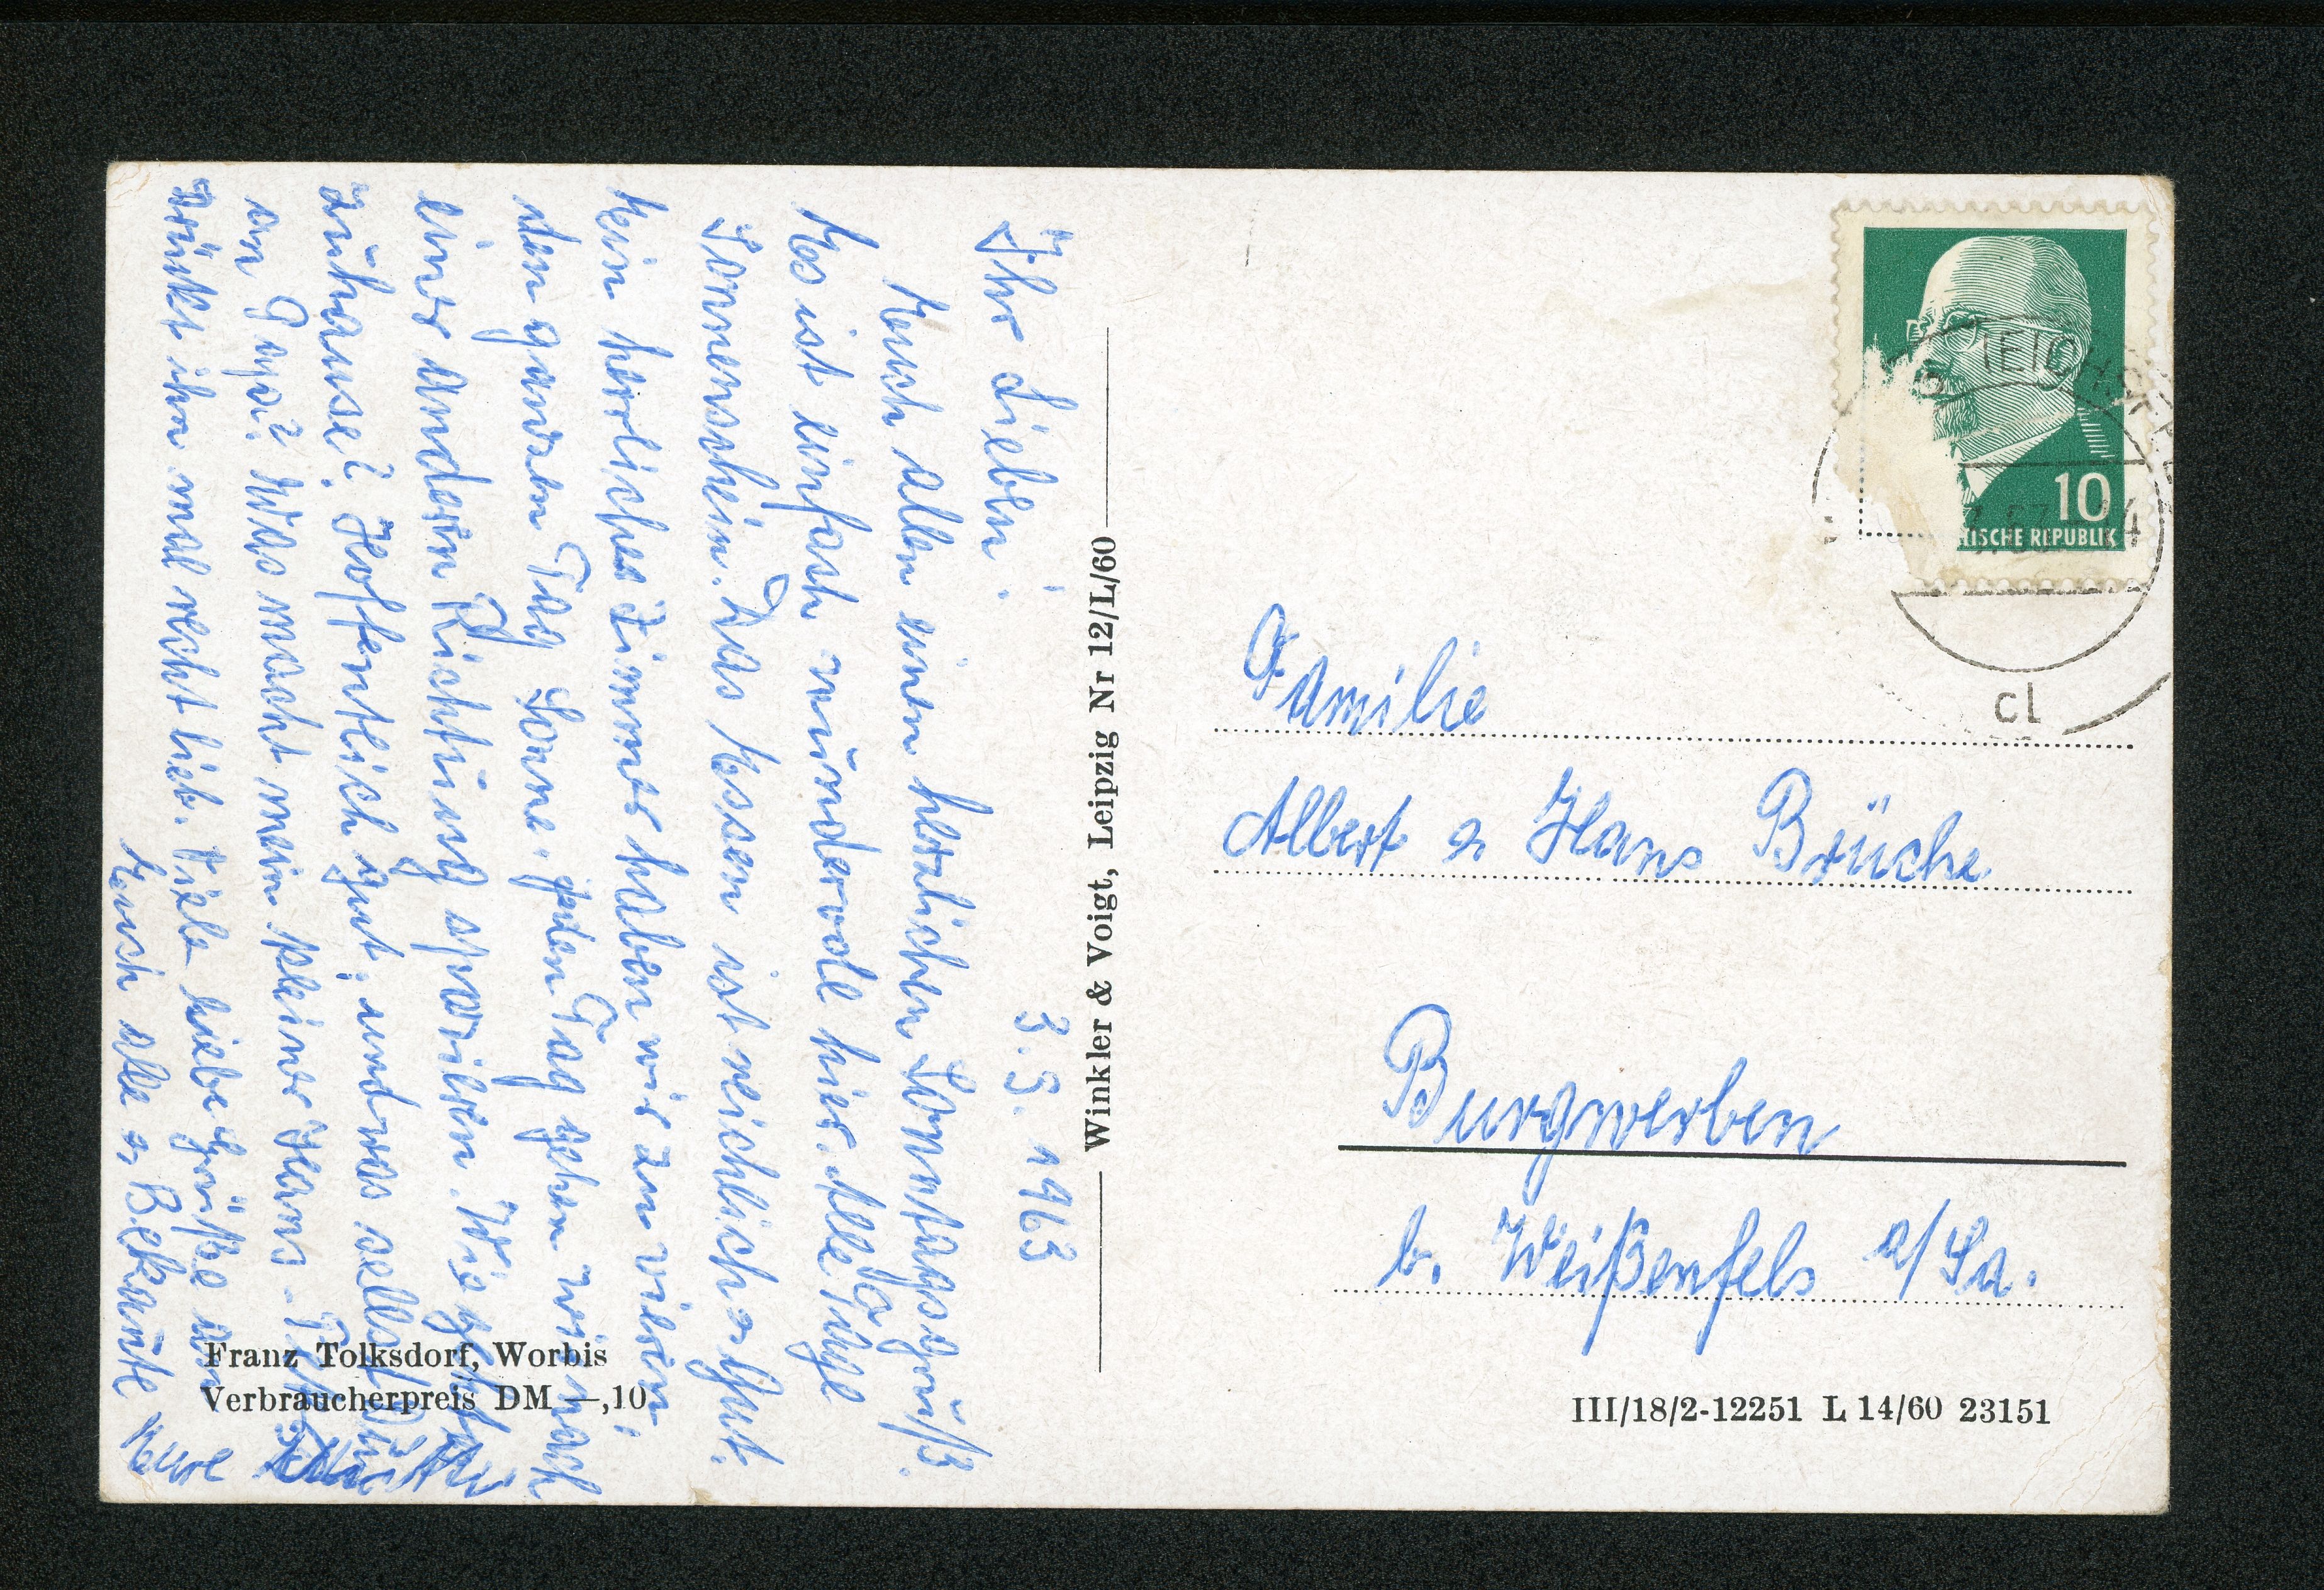 3.3.1963
Ihr Lieben!
Euch allen einen herzlichen Sonntagsgruß.
Es ist einfach wundervoll hier. Alle Tage
Sonnenschein. Das Essen ist reichlich u gut.
Ein herrliches Zimmer haben wir zu vieren,
den ganzen Tag Sonne. jeden Tag gehen wir nach
einer andern Richtung spazieren. Wie geht es
zuhause? Hoffentlich gut, und was
an Papa? Was macht mein kleiner Hans.
drückt ihn mal recht lieb. Viele liebe Grüße an
Euch alle u Bekannte Eure
Winkler & Voigt, Leipzig Nr 12/L/60
Franz Tolksdorf, Worbis
Verbraucherpreis DM —,10
10
NISCHE REPUBLIK
TEICH
cl
Familie
Albert u Hans Brüche
Burgwerben
b. Weißenfels a/Sa.
III/18/2-12251 L 14/60 23151